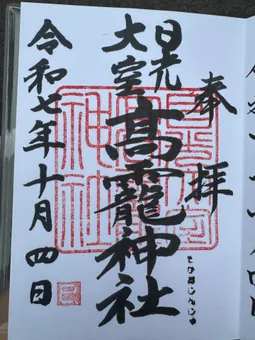 奉拝
日光
大室
高龗神社
たかおじんじゃ
令和七年十月四日